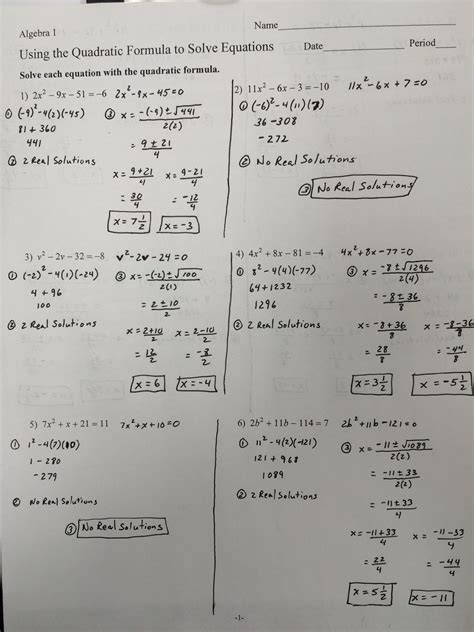 Algebra 1
Name
Using the Quadratic Formula to Solve Equations
Date Period
Solve each equation with the quadratic formula.
1) 2x² − 9x − 51 = −6 2x² − 9x − 45 = 0
① (−9)² − 4(2)(−45)
81 + 360
441
② 2 Real Solutions
③ x = −(−9) ± √441 / 2(2)
= 9 ± 21 / 4
x = 9+21 / 4 x = 9−21 / 4
= 30 / 4 = −12 / 4
x = 7 1/2 x = −3
2) 11x² − 6x − 3 = −10 11x² − 6x + 7 = 0
① (−6)² − 4(11)(7)
36 − 308
−272
② No Real Solutions
③ No Real Solutions
3) v² − 2v − 32 = −8 v² − 2v − 24 = 0
① (−2)² − 4(1)(−24)
4 + 96
100
② 2 Real Solutions
③ x = −(−2) ± √100 / 2(1)
= 2 ± 10 / 2
x = 2+10 / 2 x = 2−10 / 2
= 12 / 2 = −8 / 2
x = 6 x = −4
4) 4x² + 8x − 81 = −4 4x² + 8x − 77 = 0
① 8² − 4(4)(−77)
64 + 1232
1296
② 2 Real Solutions
③ x = −8 ± √1296 / 2(4)
= −8 ± 36 / 8
x = −8+36 / 8 x = −8−36 / 8
= 28 / 8 = −44 / 8
x = 3 1/2 x = −5 1/2
5) 7x² + x + 21 = 11 7x² + x + 10 = 0
① 1² − 4(7)(10)
1 − 280
−279
② No Real Solutions
③ No Real Solutions
6) 2b² + 11b − 114 = 7 2b² + 11b − 121 = 0
① 11² − 4(2)(−121)
121 + 968
1089
② 2 Real Solutions
③ x = −11 ± √1089 / 2(2)
= −11 ± 33 / 2(2)
= −11 ± 33 / 4
x = −11+33 / 4 x = −11−33 / 4
= 22 / 4 = −44 / 4
x = 5 1/2 x = −11
-1-